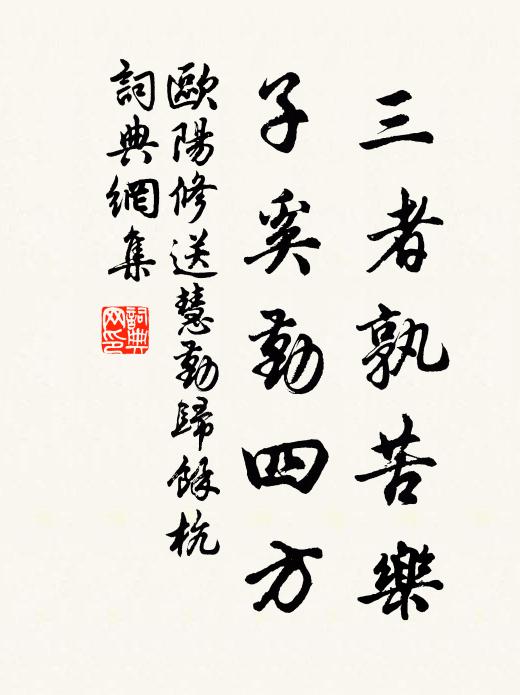 三者孰苦樂
子奚勤四方
歐陽修送慧勤歸餘杭
詞典網集
詞典
网印